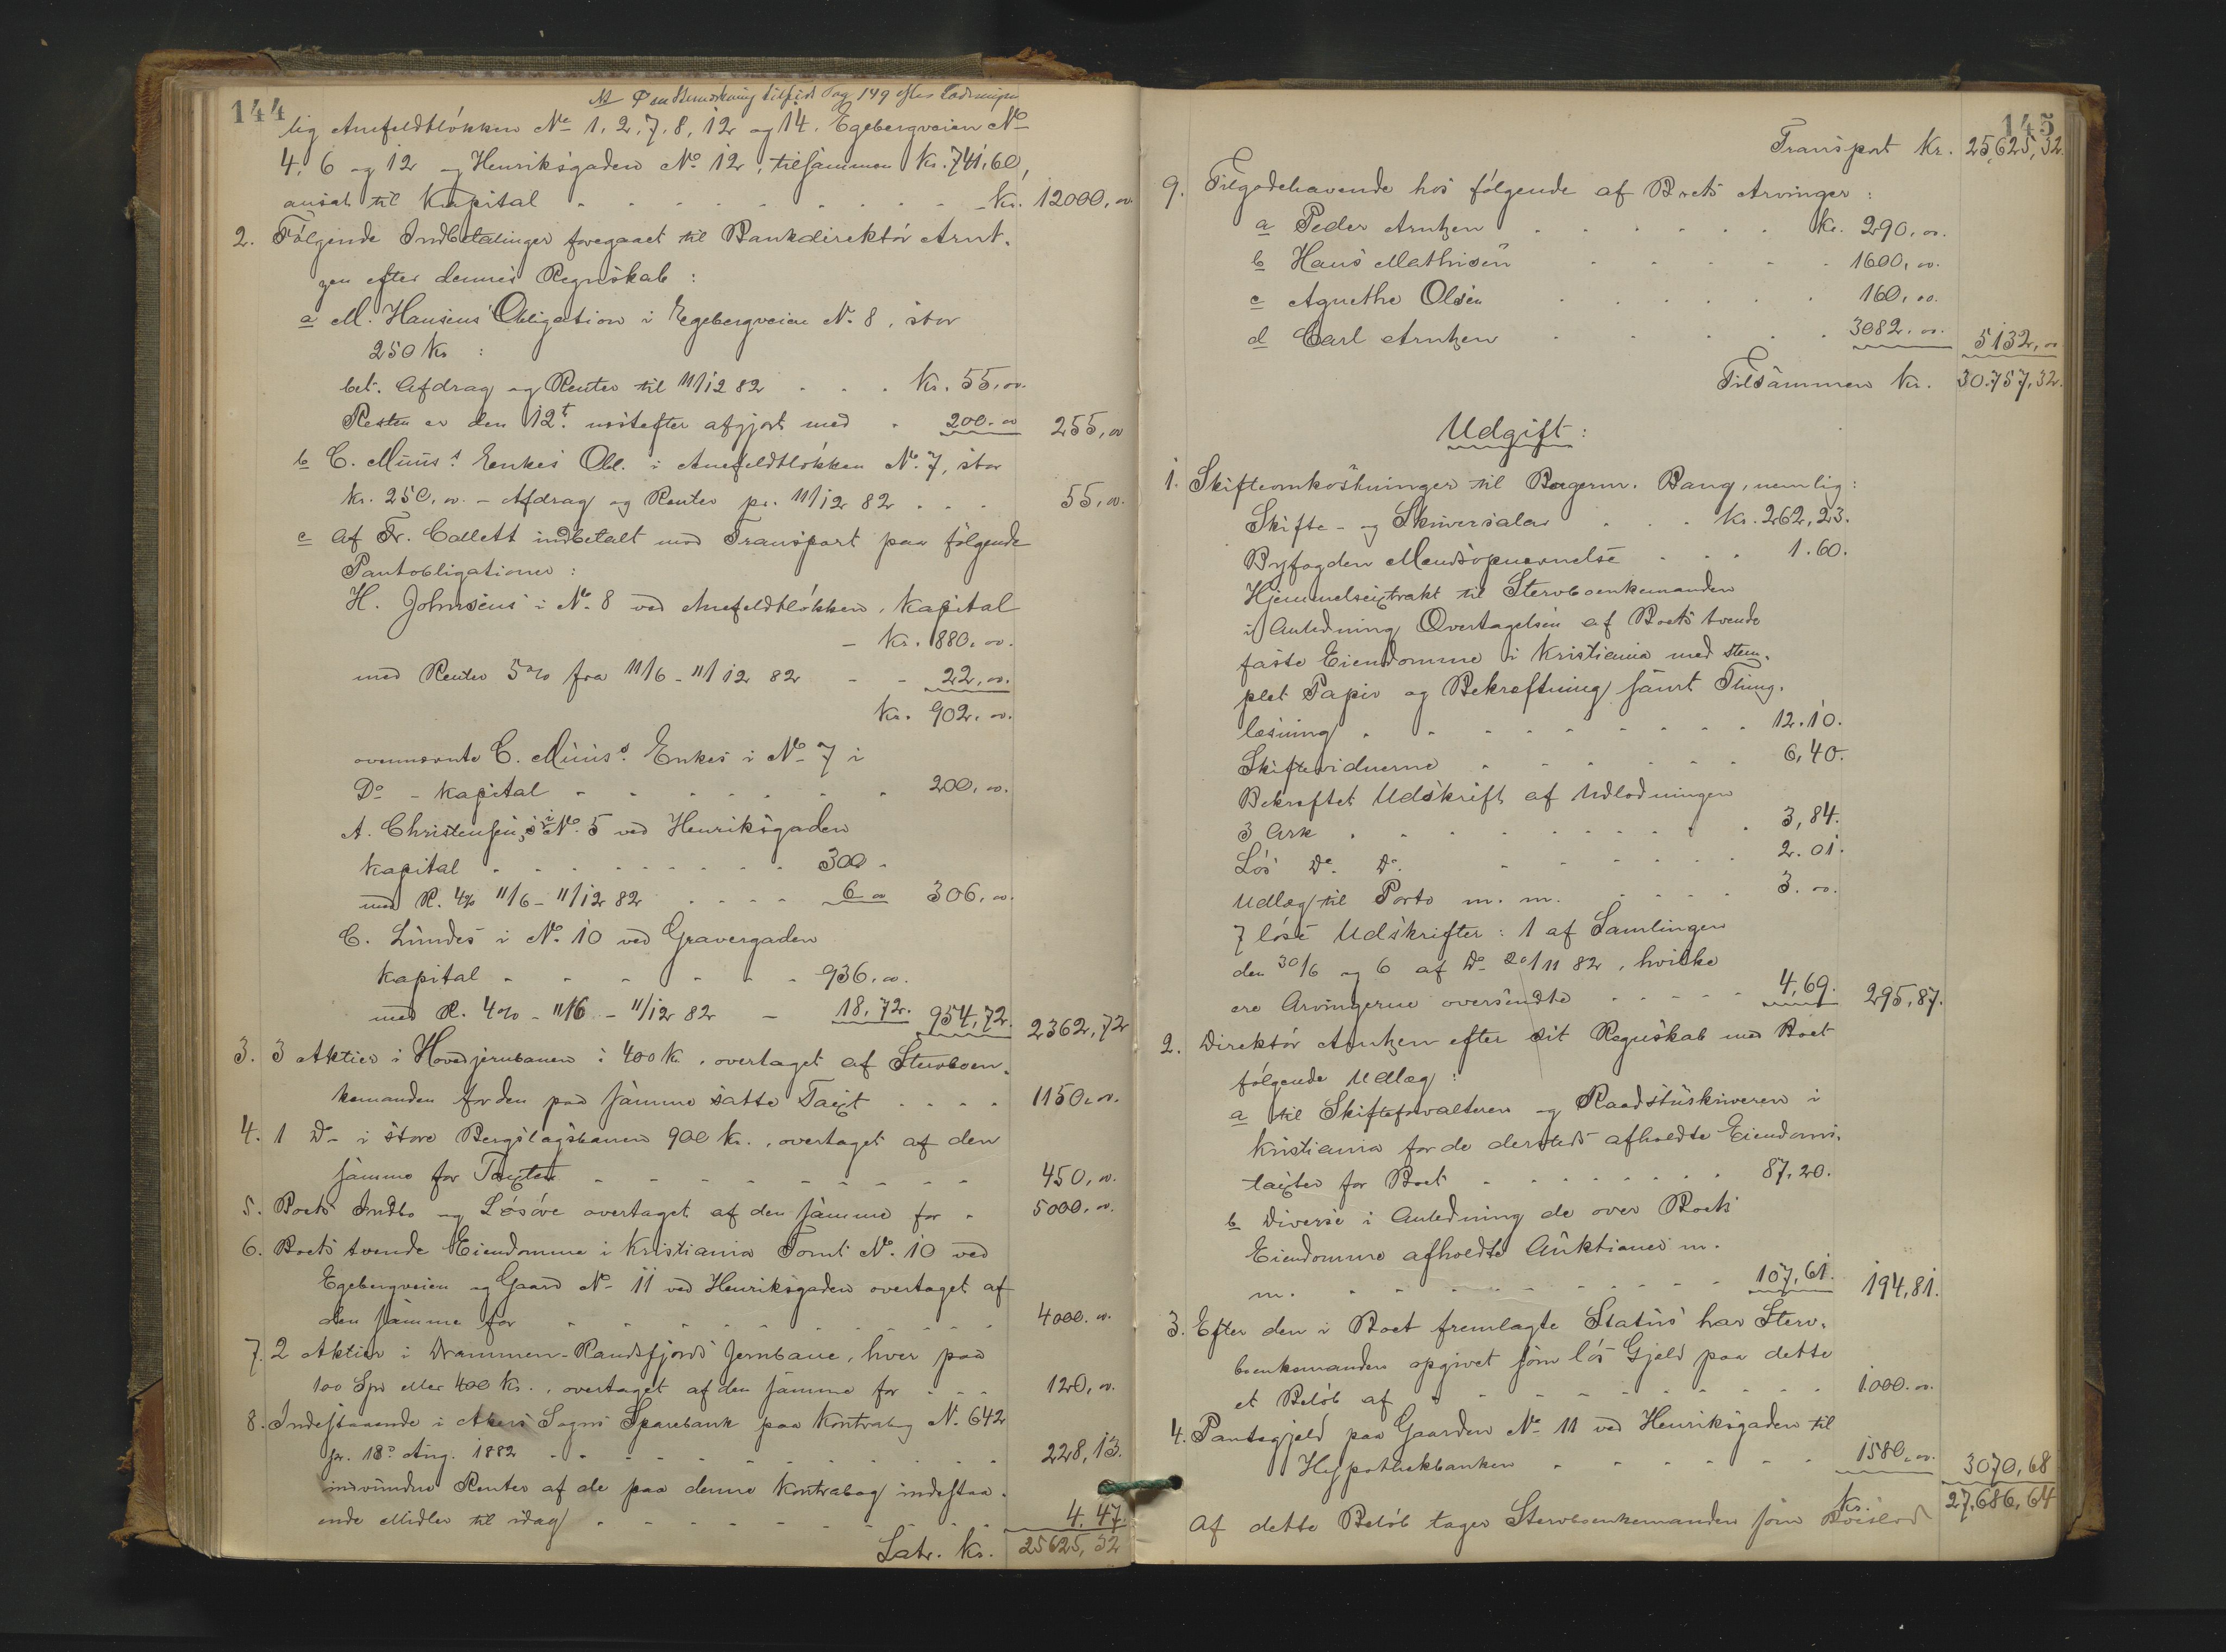 144
NB Ø en Bemærkning tilført Pag 149 efter Lodningen
lig Anefeldtløkken No 1, 2, 7, 8, 12 og 14, Egebergveien No
4, 6 og 12 og Henriksgaden No 12, tilsammen Kr. 741,60,
ansat til Kapital - - - Kr. 12000,00
2. Følgende Indbetalinger foregaaet til Bankdirektør Arnt-
zen efter dennes Regnskab:
a M. Hansens Obligation i Egebergveien No 8, stor
250 Kr:
bet. Afdrag og Renter til 11/12 82 - - - Kr. 55,00.
Resten er den 12t. næstefter afgjort med - 200.00 255,00
b C. Muus's Enkes Obl. i Anefeldtløkken No. 7, stor
Kr. 250,00. - Afdrag og Renter pr. 11/12 82 . . . 55,00.
c Af Fr. Collett indbetalt mod Transport paa følgende
Pantobligationer:
H. Johnsens i No 8 ved Anefeldtløkken, Kapital
- Kr. 880.00.
med Renter 5% fra 11/6 - 11/12 82 - - 22,00.
Kr. 902.00.
ovennævnte C. Muus's Enkes i No 7 i
Do - Kapital - - - 200,00.
A. Christensens i No. 5 ved Henriksgaden
Kapital - - - 300 -
med R. 4% 11/6 - 11/12 82 - - - 6 00 306,00.
C. Lundes i No. 10 ved Gravergaden
Kapital - - - 936.00.
med R. 4% - 11/6 - 11/12 82 - 18,72. 954,72. 2362,72
3. 3 Aktier i Hovedjernbanen à 400 Kr., overtaget af Stervboen-
kemanden for den paa samme satte Taxt . . . . 1150,00.
4. 1 Do i store Bergslagsbanen 900 Kr., overtaget af den
samme for Taxten - - - 450,00.
5. Boets Indbo og Løsøre overtaget af den samme for - 5000,00.
6. Boets tvende Eiendomme i Kristiania Tomt No. 10 ved
Egebergveien og Gaard No 11 ved Henriksgaden overtaget af
den samme for - - - 4000.00.
7. 2 Aktier i Drammen-Randsfjords Jernbane, hver paa
100 Spd eller 400 Kr., overtaget af den samme for - - - 120,00.
8. Indestaaende i Akers Sogns Sparebank paa Kontrabog No. 642
pr. 18de Aug. 1882 - - - 228,13.
indvundne Renter af de paa denne Kontrabog indestaa-
ende Midler til idag - - - 4,47.
Latr. Kr. 25625,32
145
Transport Kr. 25,625,32.
9. Tilgodehavende hos følgende af Boets Arvinger:
a Peder Arntzen . . . Kr. 290,00.
b Hans Mathisen - - - 1600,00.
c Agnethe Olsen . . . 160,00.
d Carl Arntzen . . . 3082.00. 5132,00
Tilsammen Kr. 30.757,32.
Udgift:
1. Skifteomkostninger til Borgerm. Bang, nemlig:
Skifte- og Skriversalær . . . Kr. 262,23.
Byfogden Mændsopnævnelse - - - 1.60.
Hjemmelsextrakt til Stervboenkemanden
i Anledning Overtagelsen af Boets tvende
faste Eiendomme i Kristiania med stem-
plet Papir og Bekræftning samt Thing-
læsning - - - 12.10.
Skiftevidnerne - - - 6,40.
Bekræftet Udskrift af Udlodningen
3 Ark - - - 3,84.
Løs Do. Do. - - - 2.01.
Udlæg til Porto m. m. - - - 3.00.
7 løse Udskrifter: 1 af Samlingen
den 30/6 og 6 af Do 20/11 82, hvilke
ere Arvingerne oversendte - - - 4,69. 295,87.
2. Direktør Arntzen efter sit Regnskab med Boet
følgende Udlæg:
a til Skifteforvalteren og Raadstuskriveren i
Kristiania for de dersteds afholdte Eiendoms-
taxter for Boet - - - 87,20.
b Diverse i Anledning de over Boets
Eiendomme afholdte Auktioner m.
m. - - - 107,61. 194,81.
3. Efter den i Boet fremlagte Status har Sterv-
boenkemanden opgivet som løs Gjæld paa dette
et Beløb af - - - 1000.00.
4. Pantegjæld paa Gaarden No 11 ved Henriksgaden til
Hypothekbanken - - - 1580,00. 3070,68
Kr. 27,686,64
Af dette Beløb tager Stervboenkemanden som Boeslod